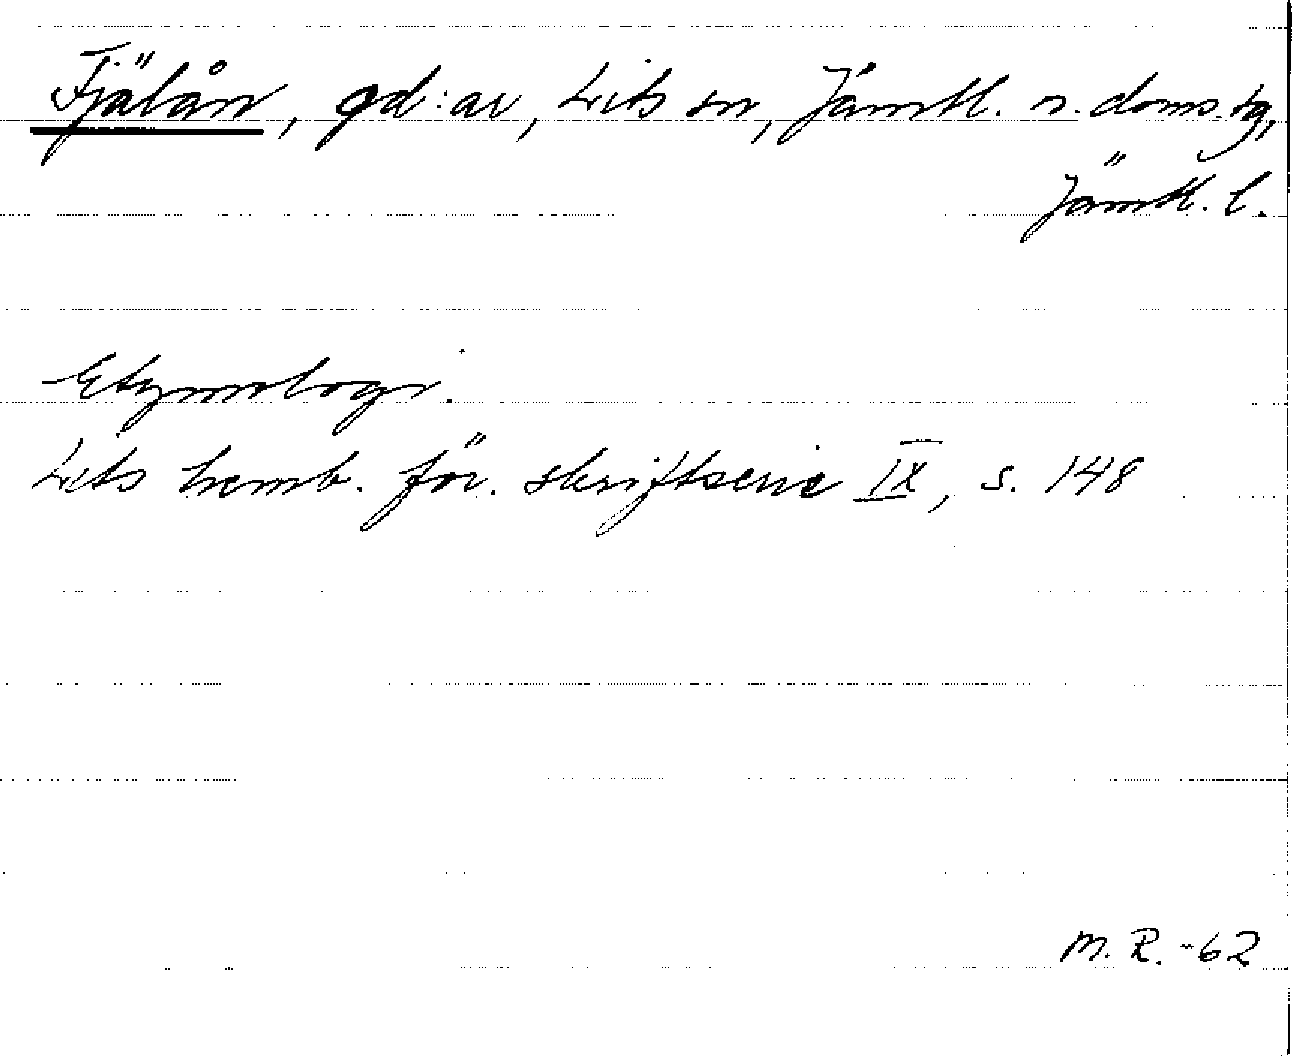 Fjälån, gd:ar, Lits sn, Jämtl. n. doms.tg,
Jämtl. l.
Etymologi.
Lits hemb. för. skriftserie IX, s. 148
M. R. -62